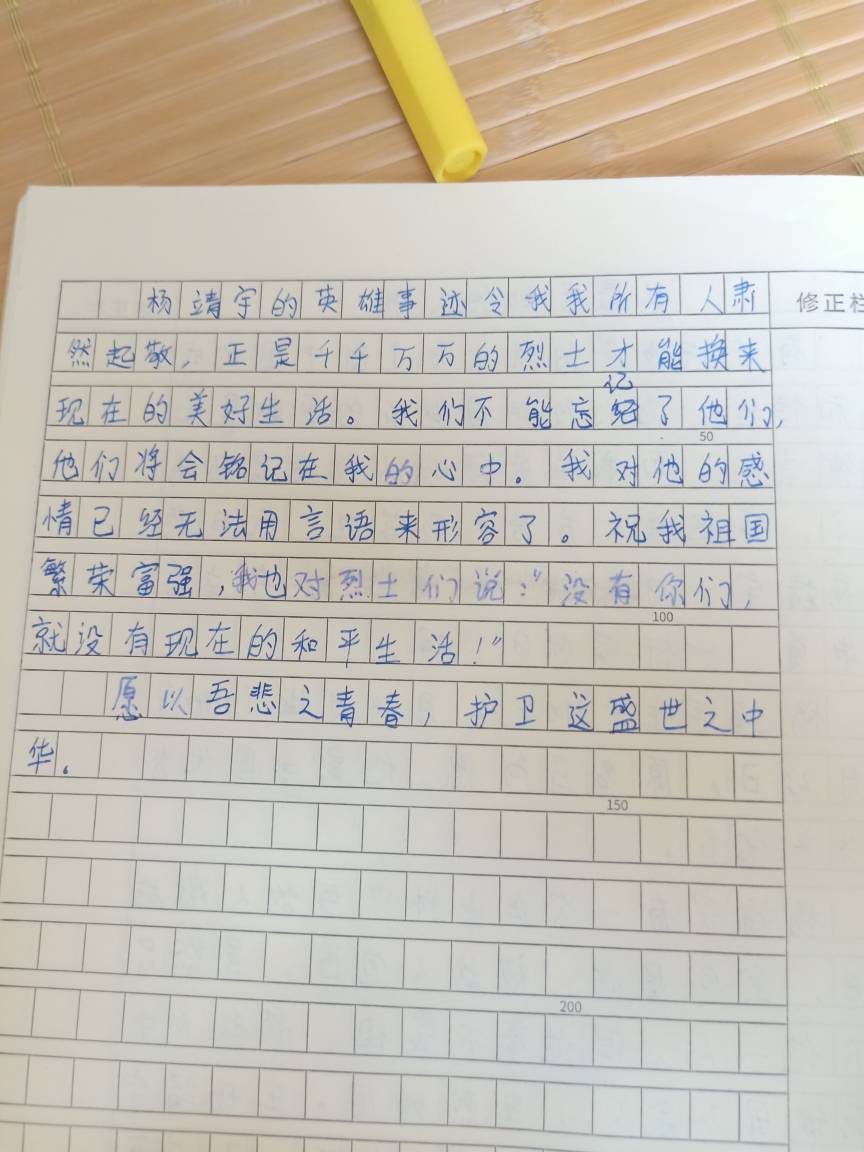 杨靖宇的英雄事迹令我我所有人肃
修正栏
然起敬，正是千千万万的烈士才能换来
现在的美好生活。我们不能忘记了他们，
50
他们将会铭记在我的心中。我对他的感
情已经无法用言语来形容了。祝我祖国
繁荣富强，我也对烈士们说：“没有你们，
100
就没有现在的和平生活！”
愿以吾悲之青春，护卫这盛世之中
华。
150
200